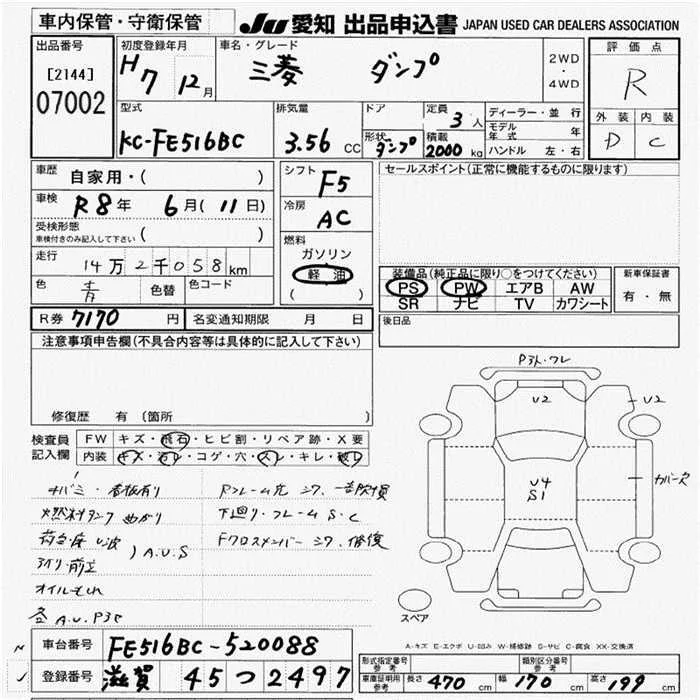 車内保管・守衛保管 JU 愛知 出品申込書 JAPAN USED CAR DEALERS ASSOCIATION
出品番号 [2144] 07002
初度登録年月 H7 12月
車名・グレード 三菱 ダンプ
2WD・4WD
評価点 R
外装 内装
D C
型式 KC-FE516BC
排気量 3.56 CC
ドア
形状 ダンプ
定員 3人
積載 2000 kg
ディーラー・並行
モデル年式 年
ハンドル 左・右
車歴 自家用・( )
車検 R8年 6月(11日)
受検形態 ( )
車検付きのみ記入して下さい
走行 14万2千058km
色 青 色替 色コード
シフト F5
冷房 AC
燃料
ガソリン
軽油
( )
セールスポイント(正常に機能するものに限ります)
装備品(純正品に限り○をつけてください)
PS PW エアB AW
SR ナビ TV カワシート
新車保証書
有・無
R券 7170 円 名変通知期限 月 日
後日品
注意事項申告欄(不具合内容等は具体的に記入して下さい)
修復歴 有 (箇所 )
検査員記入欄
FW キズ・飛石・ヒビ割・リペア跡・X要
内装 キズ・汚レ・コゲ・穴・スレ・キレ・破レ
看板有り
燃料タンク 曲がり
A.U.S
オイルもれ
各 A.U.P3ケ
下廻り・フレーム S.C
Fクロスメンバー シワ、修復
U2
U4
S1
U2
カバー欠
スペア
A-キズ E-エクボ U-凹み W-補修跡 S-サビ C-腐食 XX-交換済
車台番号 FE516BC-520088
登録番号 滋賀 45 つ 2497
形式指定番号 参考
類別区分番号 参考
車庫証明用 参考 長さ 470 cm 幅 170 cm 高さ 199 cm